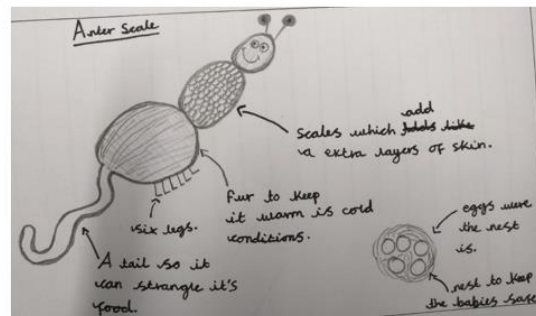 Anter Scale
Scales which add
~~folds like~~
a extra layers of skin.
fur to keep
it warm is cold
conditions.
six legs.
A tail so it
can strangle it's
food.
eggs were
the nest
is.
nest to keep
the babies safe